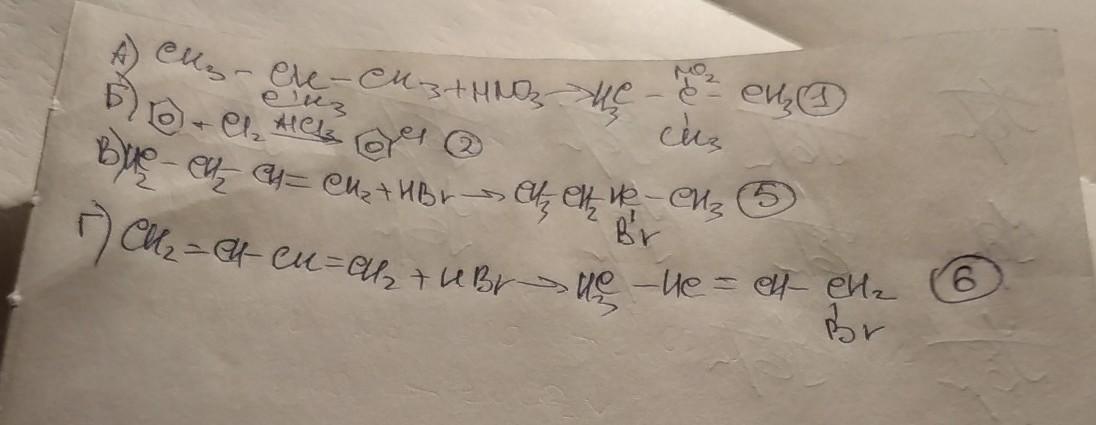 А) CH3 - CH - CH3 + HNO3 → H3C - C - CH3 (1)
CH3 NO2 CH3
Б) + Cl2 AlCl3 → Cl (2)
В) H2C - CH2 CH = CH2 + HBr → CH3 CH2 HC - CH3 (5)
Br
Г) CH2 = CH - CH = CH2 + HBr → H3C - HC = CH - CH2 (6)
Br